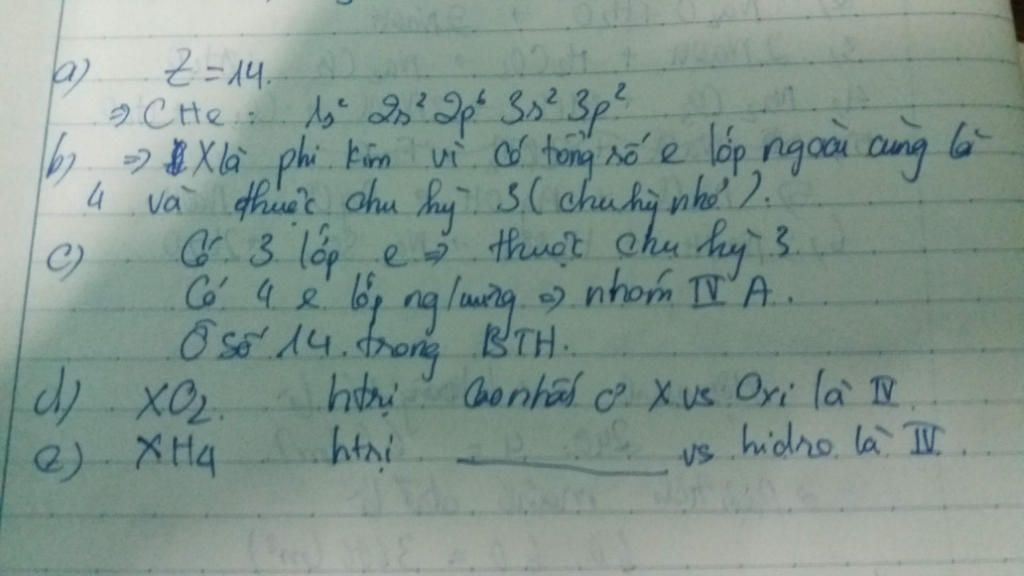 a) Z = 14.
⇒ CHe : 1s² 2s² 2p⁶ 3s² 3p²
b) ⇒ X là phi kim vì có tổng số e lớp ngoài cùng là
4 và thuộc chu kỳ 3 (chu kỳ nhỏ).
c) Có 3 lớp e ⇒ thuộc chu kỳ 3.
Có 4 e lớp ng/cùng ⇒ nhóm IV A.
Ô số 14 trong BTH.
d) XO₂. htrị cao nhất X vs Oxi là IV
e) XH₄ htrị ——— vs hidro là IV.